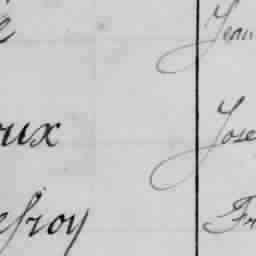 e Jean
oux Jose
efroy Fr